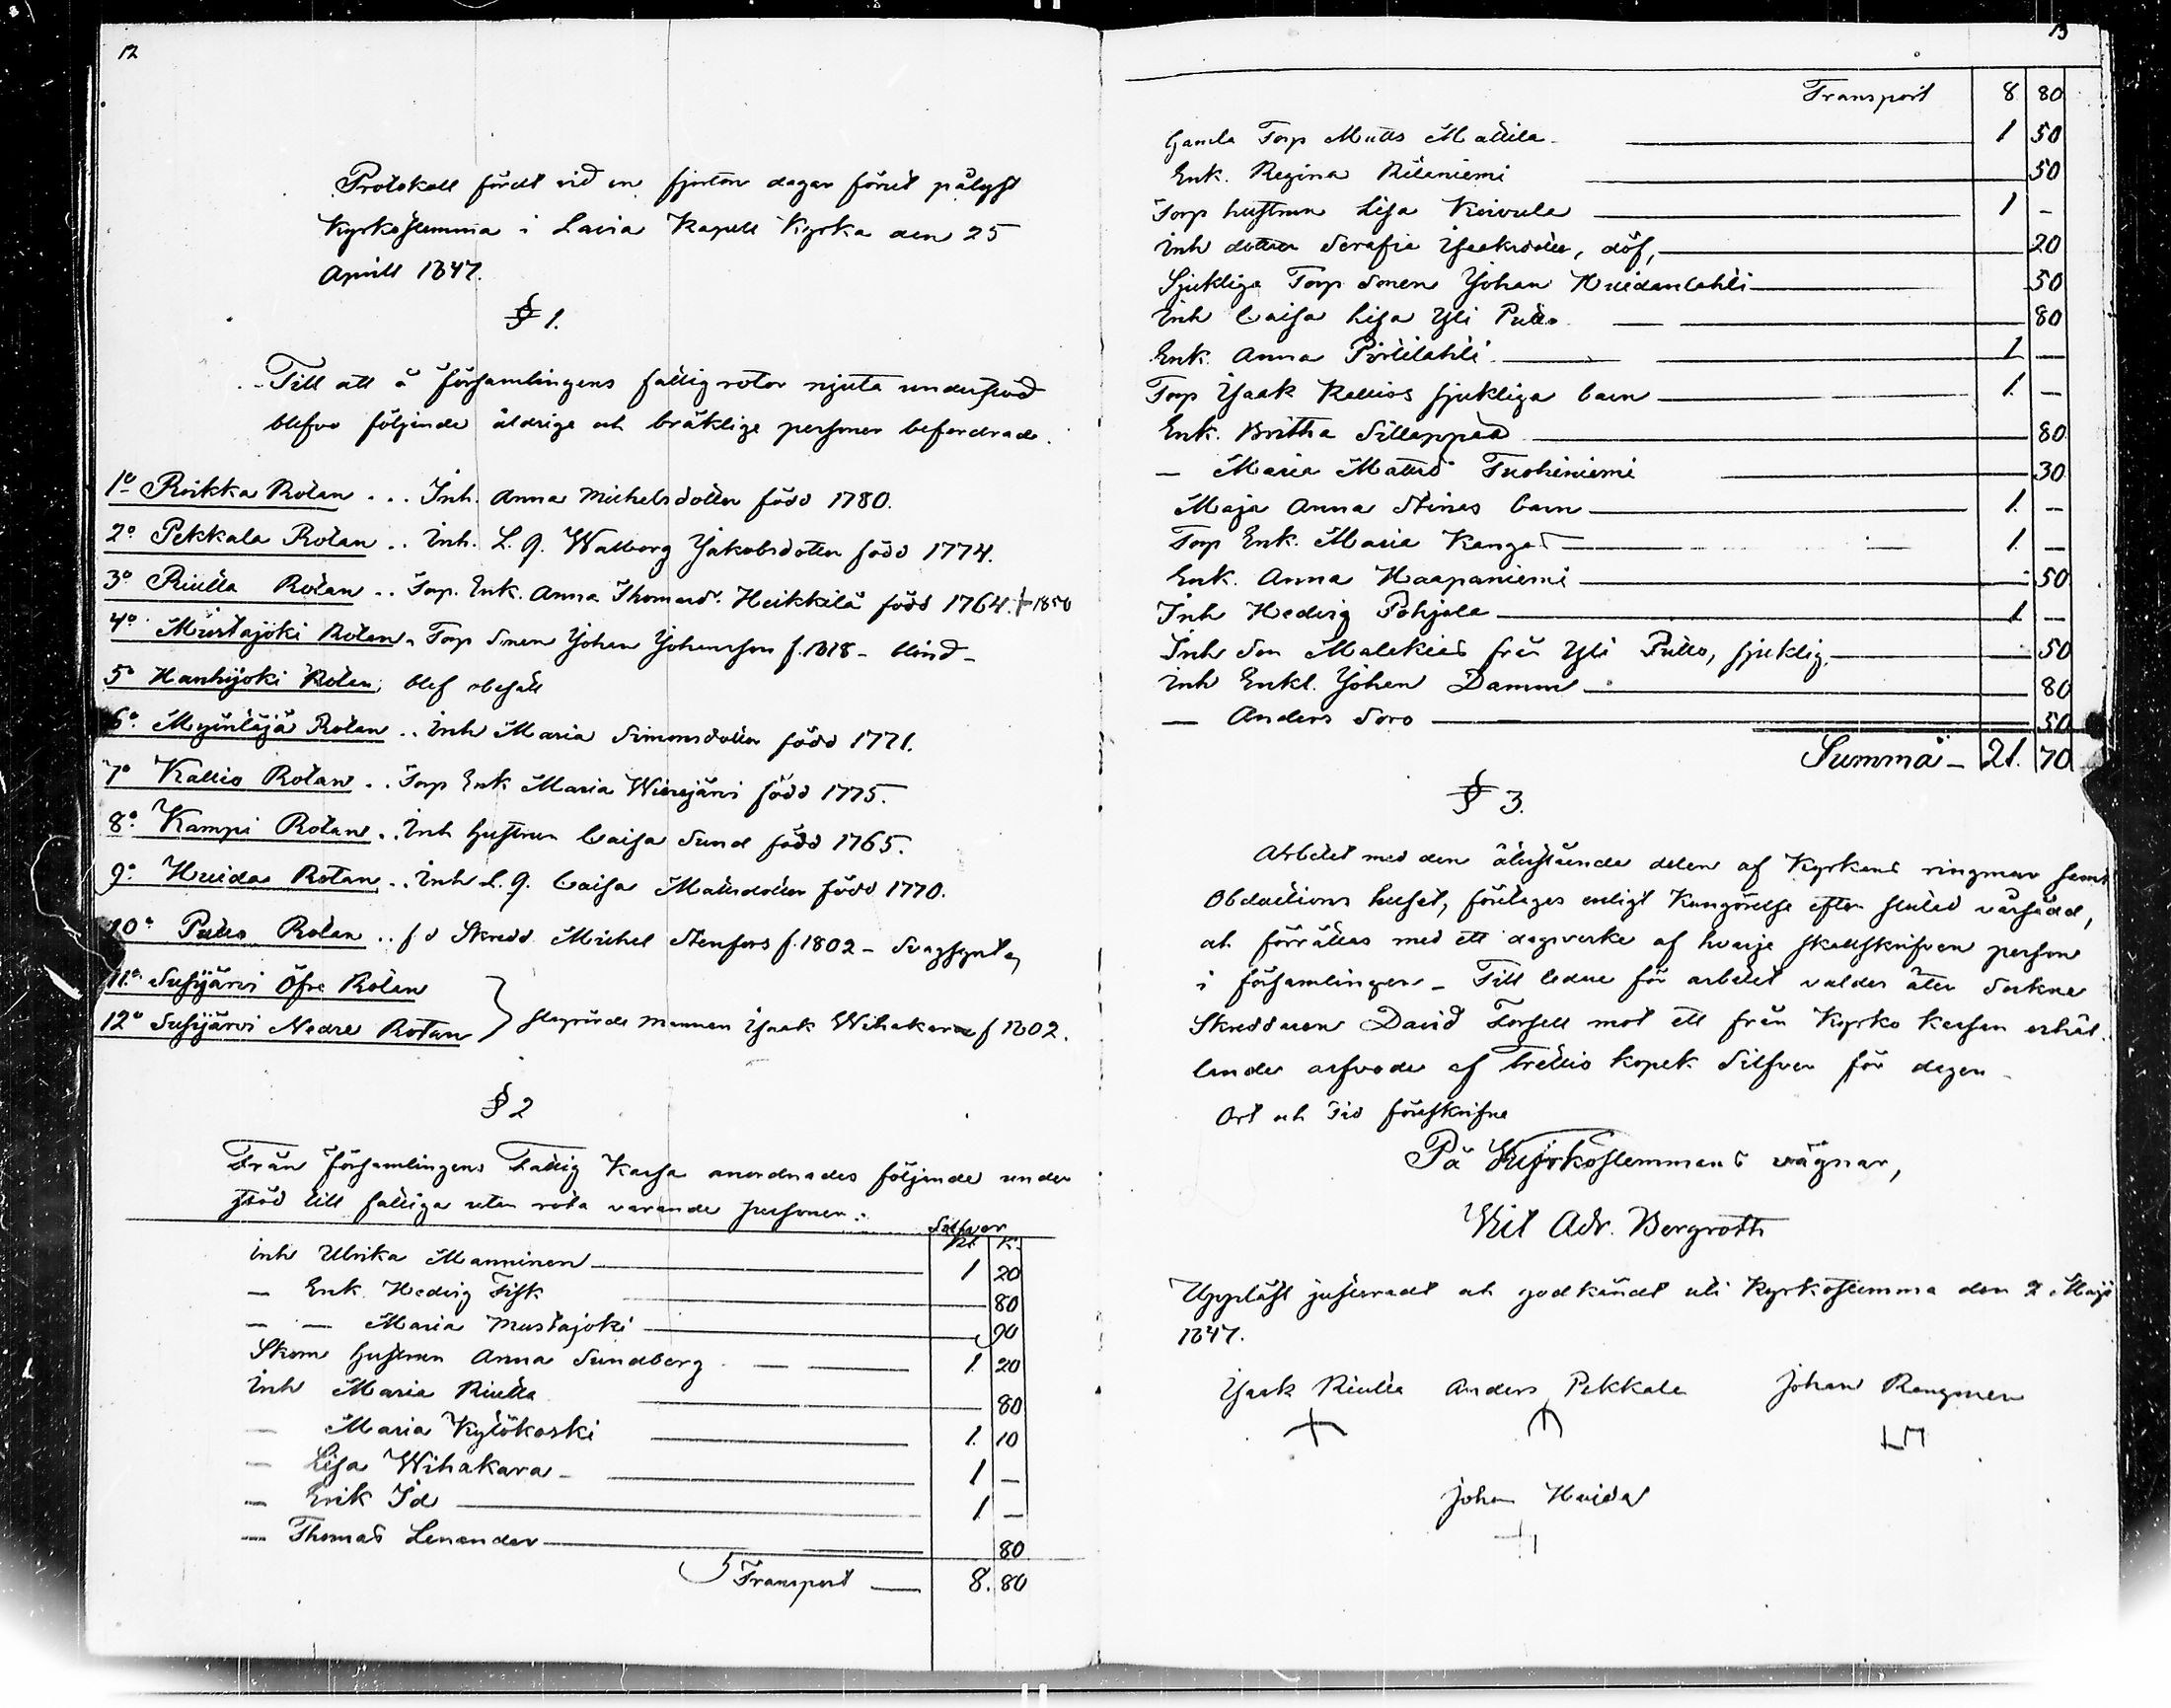 12
Protokoll fördt vid en fjorton dagar förut pålyst
Kyrkostemma i Lavia Kapell Kyrka den 25
April 1847.
§ 1.
Till att å församlingens fattigrotor njuta understöd
blefvo följande åldrige och bräklige personer befordrade.
1o Riikka Rotan ... Inh. Anna Michelsdotter född 1780.
2o Pekkala Rotan .. Inh. L. q. Walborg Jakobsdotter född 1774.
3o Riutta Rotan .. Torp. Enk. Anna Thomasd. Heikkilä född 1764. + 1850
4o Mustajoki Rotan. Torp Sonen Johan Johansson f. 1818 - blind -
5o Hanhijoki Rotan, blef obesatt
6o Myöntäjä Rotan .. Inh Maria Simonsdotter född 1771.
7o Kallio Rotan .. Torp Enk Maria Wierijärvi född 1775.
8o Kampi Rotan .. Inh hustrun Caisa Sund född 1765.
9o Huida Rotan .. Inh L. q. Caisa Mattsdotter född 1770.
10o Putto Rotan .. f d Skredd. Michel Stenfors f. 1802 - Svagsynt
11o Susijärvi Öfre Rotan
12o Susijärvi Nedre Rotan } Slagrörde mannen Isaak Wihakara f 1802.
§ 2
Från församlingens Fattig Kassa anordnades följande under
stöd till fattiga utan rota varande personer:
Silfver
Rb. K.
Inh Ulrika Manninen 1 20
— Enk Hedvig Fisk 80
— — Maria Mustajoki 90
Skom hustrun Anna Sundberg 1. 20
Inh Maria Riutta 80
— Maria Kylökoski 1. 10
— Lisa Wihakara - 1 —
— Erik Id 1 —
— Thomas Lenander 80
Transport — 8. 80
13
Transport 8 80
Gamla Torp Matts Mattila 1 50
Enk. Regina Riteniemi 50
Torp hustrun Lisa Koivula 1 -
Inh dotter Serafia Isaksdotter, döf, 20
Sjukliga Torp Sonen Johan Huidanlahti 50
Inh Caisa Lisa Yli Putto 80
Enk. Anna Pirttilahti 1 —
Torp Isaak Kallios sjukliga barn 1. —
Enk. Britha Sillanpää 80
— Maria Mattsd. Tuohiniemi 30
Maja Anna Stinas barn 1. —
Torp Enk. Maria Kangas 1. —
Enk. Anna Haapaniemi 50
Inh Hedvig Pohjola 1 —
Inh Son Malakias från Yli Putto, sjuklig. 50
Inh Enkl. Johan Damm 80
— Anders Soro 50
Summa - 21. 70
§ 3.
Arbetet med den återstående delen af Kyrkans ringmur samt
Obductions huset, företages enligt Kungörelse efter slutad vårsådd,
och förrättas med ett dagsverke af hvarje skattskrifven person
i församlingen - Till ledare för arbetet valdes åter Sockne
Skreddaren David Forsell mot ett från Kyrko Kassan erhål-
lande arfvode af trettio kopek Silfver för dagen -
Ort och tid förutskrifne
På Kyrkostemmans vägnar,
Wit Adr. Bergroth
Uppläst justeradt och godkändt uti Kyrkostemma den 2 Maji
1847.
Isaak Riutta Anders Pekkala Johan Rengman
Johan Huida